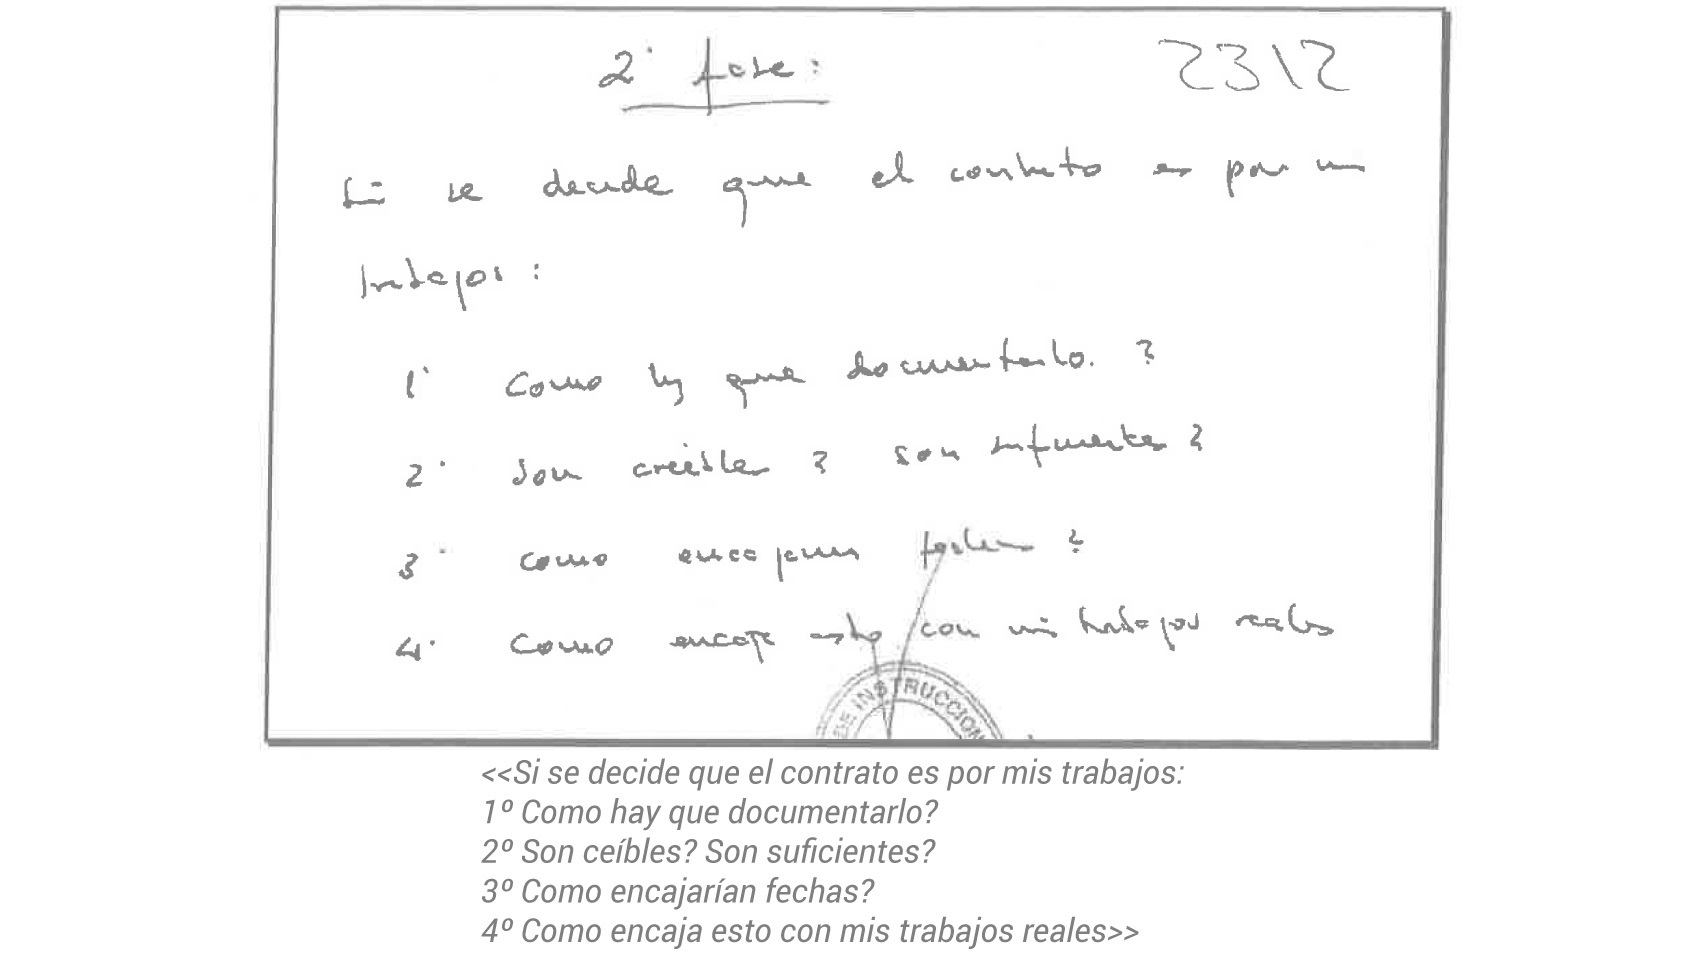 2º fase:
2312
Si se decide que el contrato es por mis
trabajos:
1º Como hay que documentarlo. ?
2º Son creibles ? son suficientes ?
3º como encajarian fechas ?
4º Como encaja esto con mis trabajos reales
DE INSTRUCCION
<<Si se decide que el contrato es por mis trabajos:
1º Como hay que documentarlo?
2º Son ceíbles? Son suficientes?
3º Como encajarían fechas?
4º Como encaja esto con mis trabajos reales>>